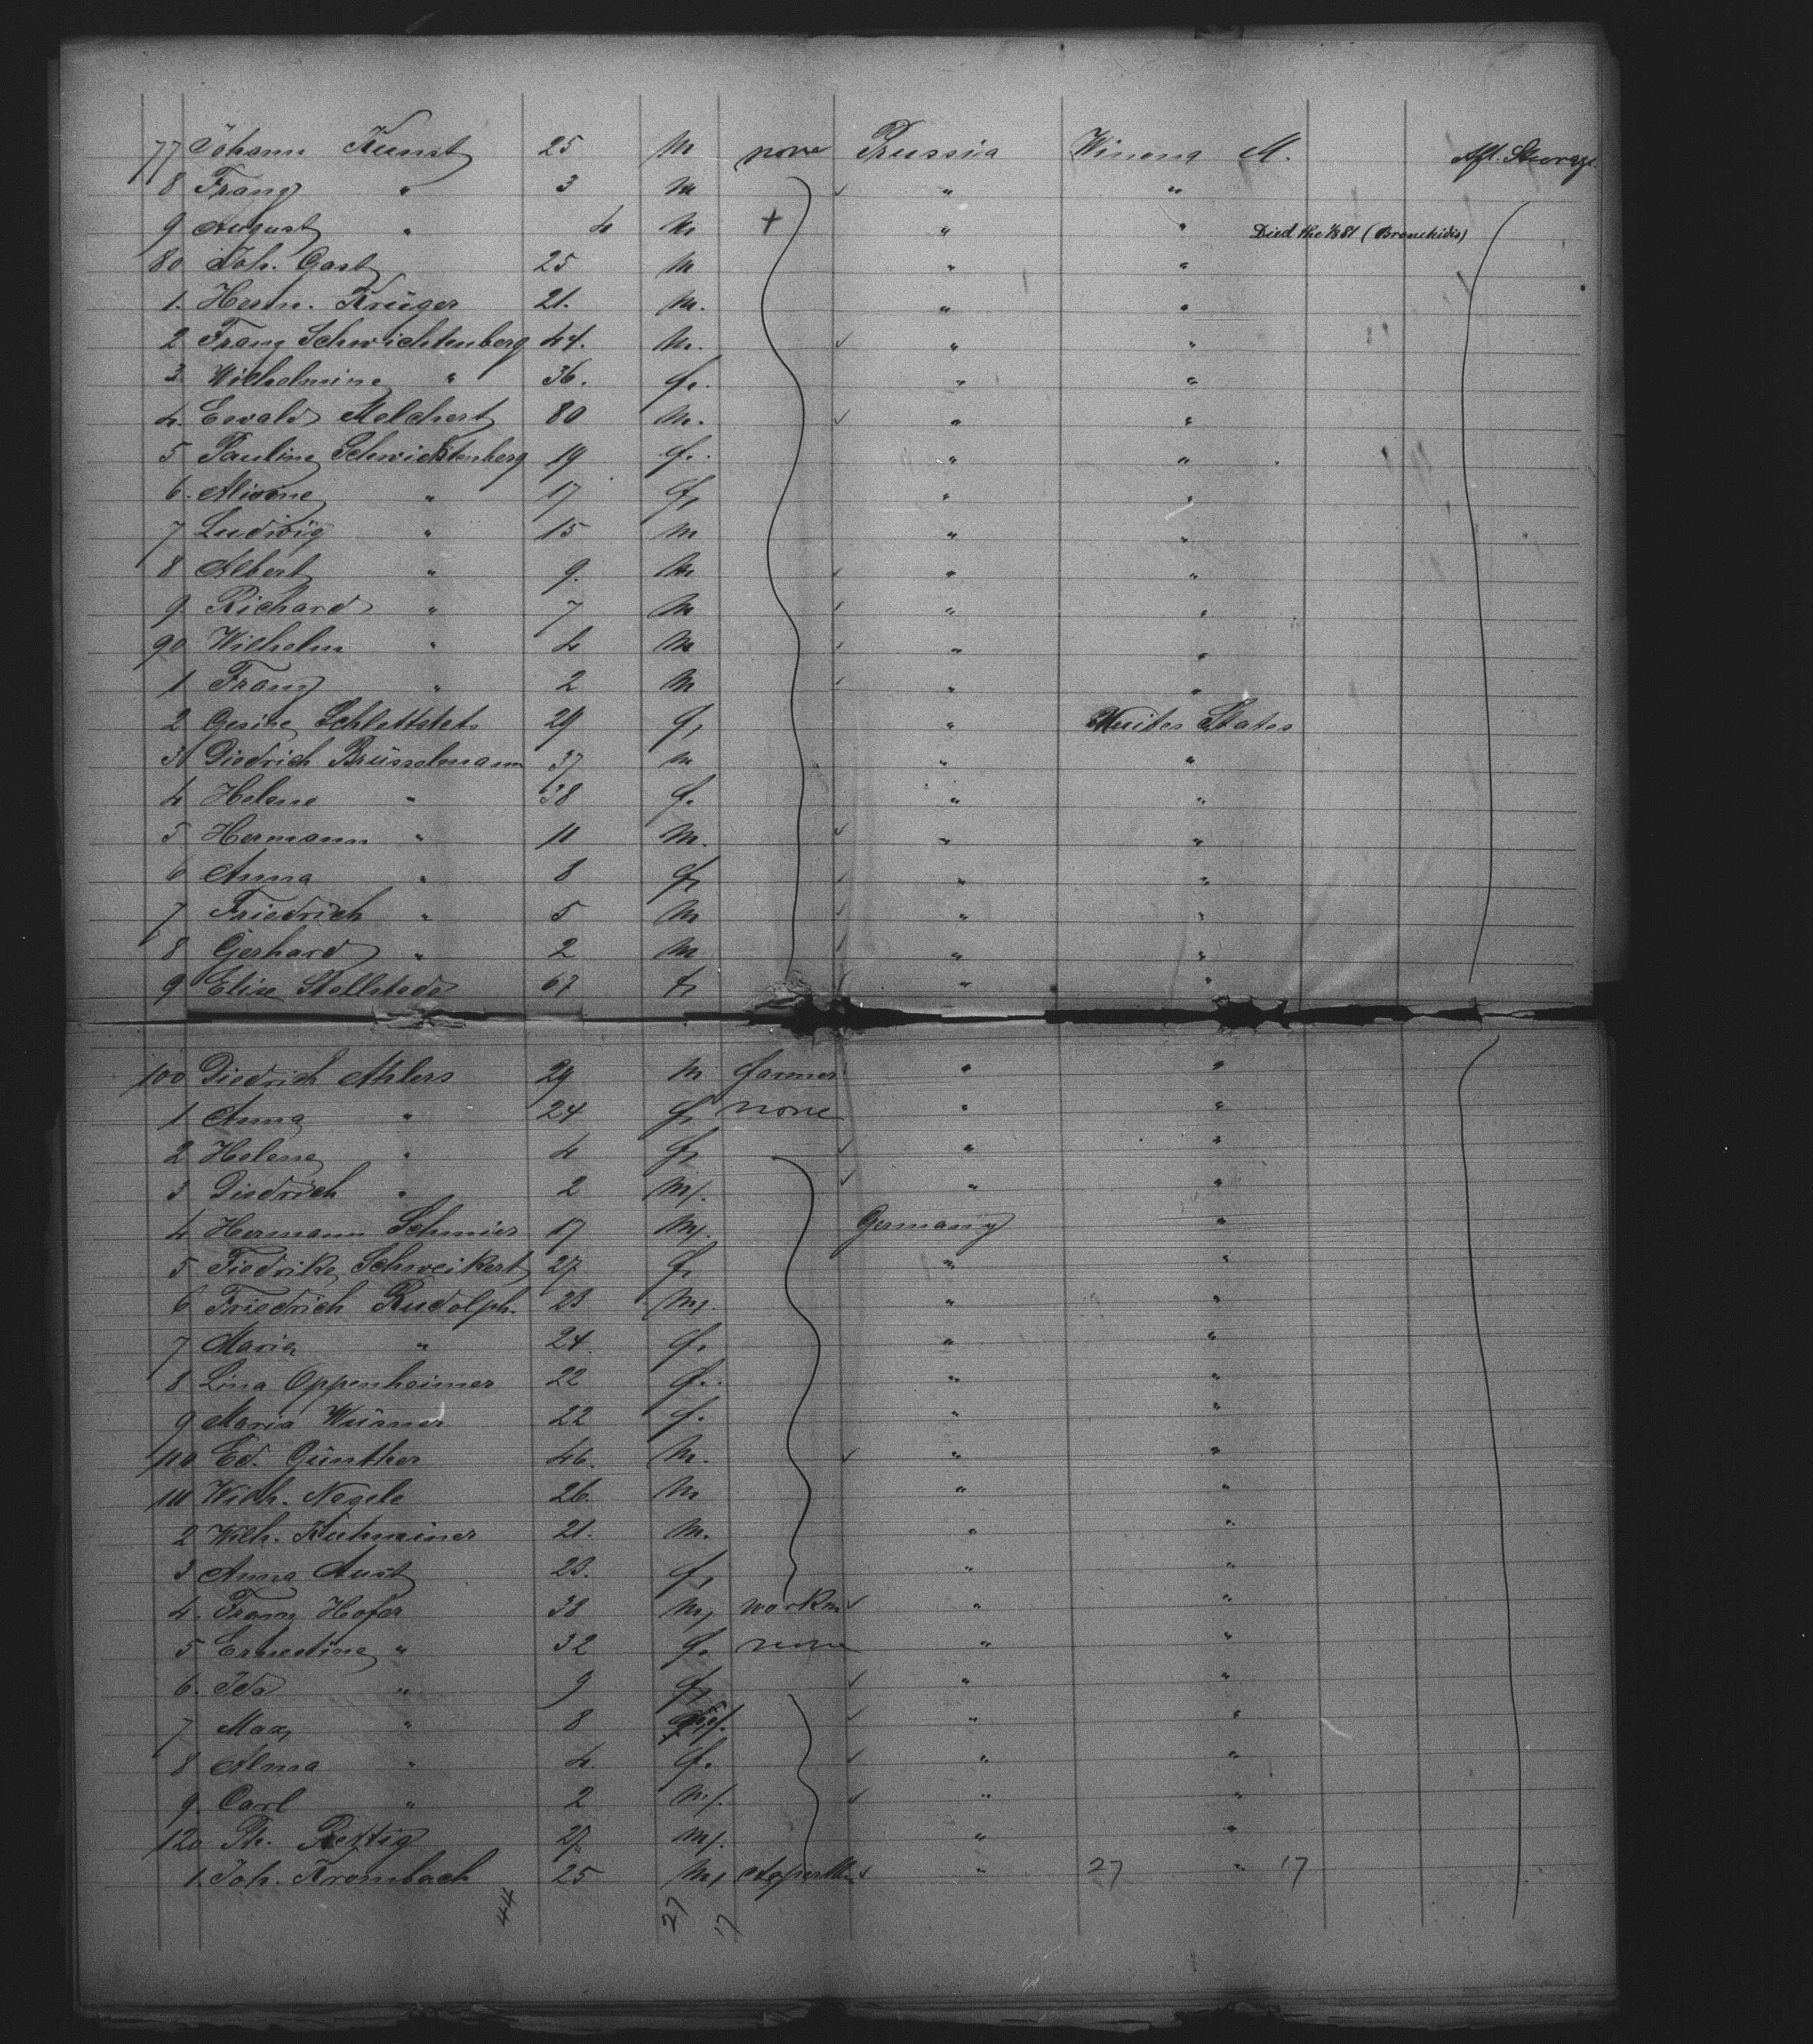 77 Johann Kunst 25 m none Prussia Winona M. Aft. Steerage
8 Franz " 3 m " "
9 August " 4 m + " " Died the /81 (Bronchidis)
80 Joh. Gast 25 m " "
1. Herm. Krüger 21. m. " "
2 Franz Schwichtenberg 44. m. " "
3 Wilhelmine " 36. f. " "
4. Ewald Melchert 80 m. " "
5 Pauline Schwichtenberg 19 f. " "
6. " 17 f. " "
7 Ludwig " 15 m " "
8 Albert " 9. m " "
9 Richard " 7 m " "
90 Wilhelm " 4 m " "
1 Franz " 2 m " "
2 Gesine 29 f. " United States
3 Diedrich Brüsselmann 37 m " "
4 Helene " 38 f. " "
5 Hermann " 11 m. " "
6 Anna " 8 f. " "
7 Friedrich " 5 m " "
8 Gerhard " 2 m " "
9 Elise Stellstede 67 f. " "
100 Diedrich Ahlers 29 m farmer " "
1 Anna " 24 f. none " "
2 Helene " 4 f. " "
3 Diedrich " 2 m. " "
4 Hermann Schmier 17 m. Germany "
5 Fiedrike Schweikert 27 f. " "
6 Friedrich Rudolph. 23 m. " "
7 Maria " 24. f. " "
8 Lina Oppenheimer 22 f. " "
9 Maria 22 f. " "
110 Ed. Günther 46. m. " "
111 Wilh. Nagele 26. m " "
2 Wilh. 21. m. " "
3 Anna Aust 23. f. " "
4. Franz Hofer 38 m. workm " "
5 Ernestine " 32 f. none " "
6. Ida " 9 f. " "
7 Max " 8 " "
8 Alma " 4. f. " "
9. Carl " 2 m. " "
120 Th. Rettig 27. m. " "
1. Joh. Krombach 25 m. " 27 " 17
44 27 17